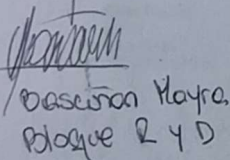 Bascuñan Mayra,
Bloque R y D